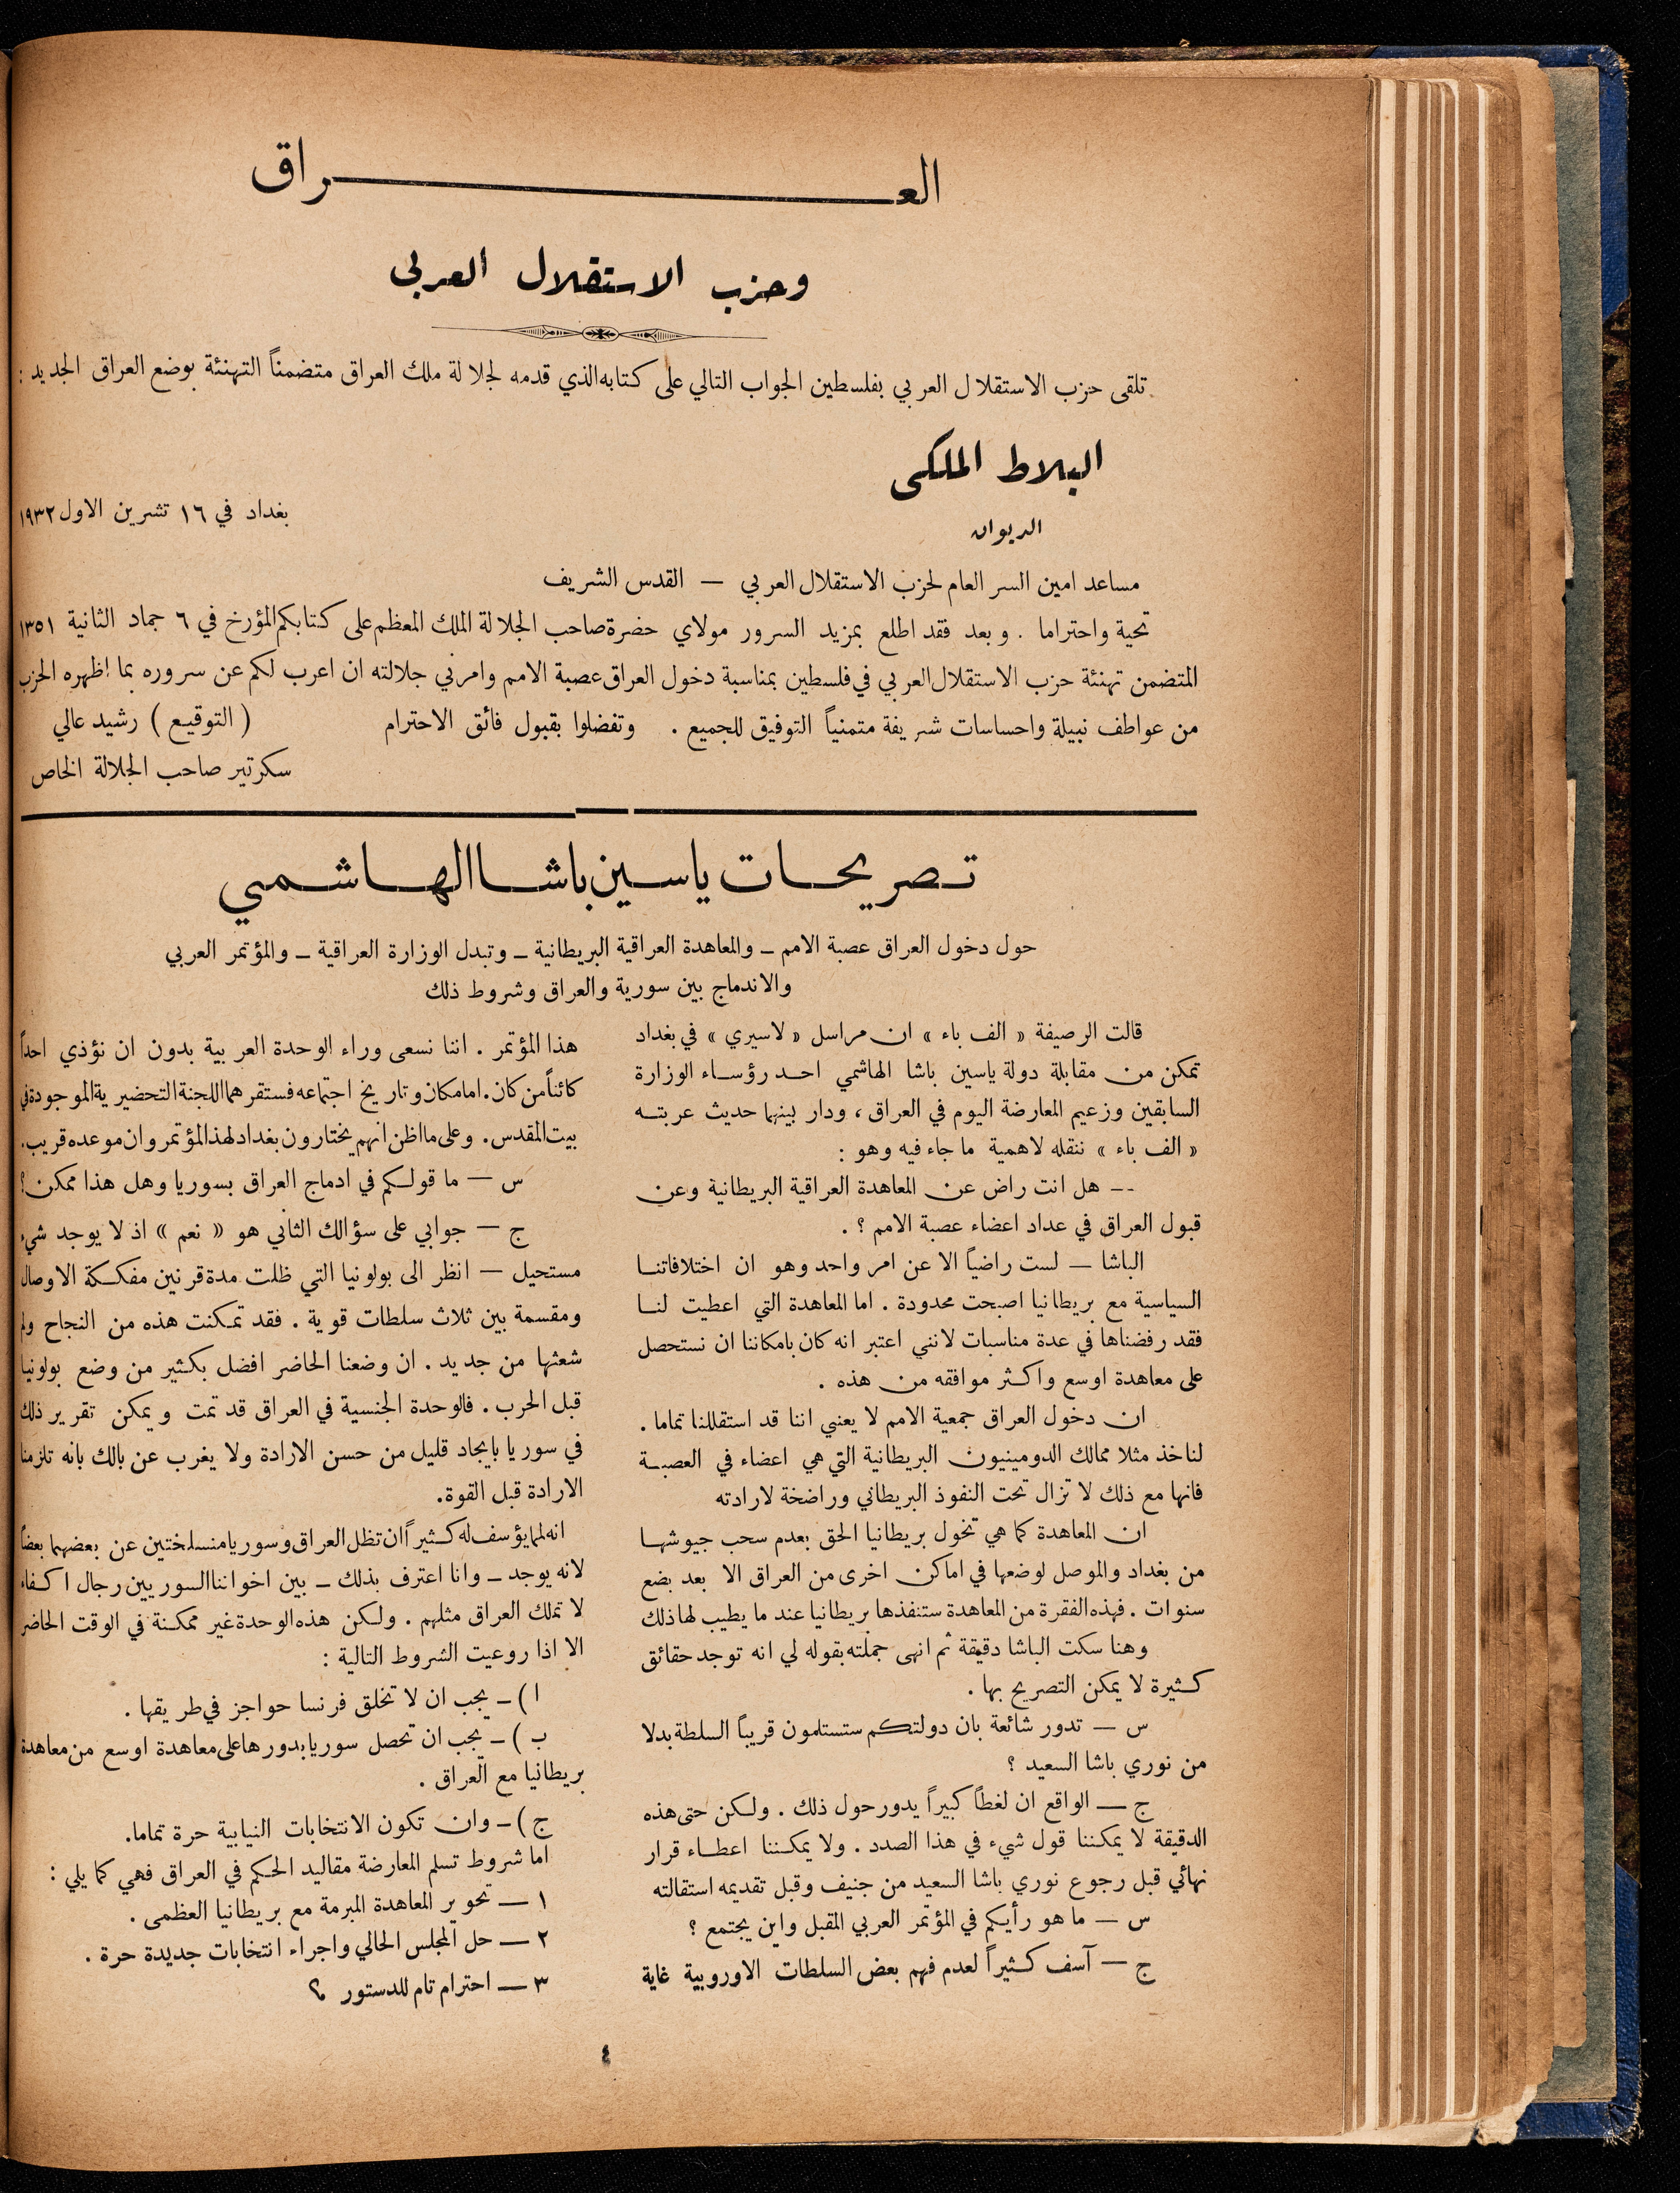 العـــراق
وحزب الاستقلال العربي
تلقى حزب الاستقلال العربي بفلسطين الجواب التالي على كتابه الذي قدمه لجلالة ملك العراق متضمناً التهنئة بوضع العراق الجديد :
البلاط الملكي
الديوان
بغداد في ١٦ تشرين الاول ١٩٣٢
مساعد امين السر العام لحزب الاستقلال العربي — القدس الشريف
تحية واحتراما . وبعد فقد اطلع بمزيد السرور مولاي حضرة صاحب الجلالة الملك المعظم على كتابكم المؤرخ في ٦ جماد الثانية ١٣٥١
المتضمن تهنئة حزب الاستقلال العربي في فلسطين بمناسبة دخول العراق عصبة الامم وامرني جلالته ان اعرب لكم عن سروره بما اظهره الحزب
من عواطف نبيلة واحساسات شريفة متمنياً التوفيق للجميع . وتفضلوا بقبول فائق الاحترام ( التوقيع ) رشيد عالي
سكرتير صاحب الجلالة الخاص
تصريحات ياسين باشا الهاشمي
حول دخول العراق عصبة الامم – والمعاهدة العراقية البريطانية – وتبدل الوزارة العراقية – والمؤتمر العربي
والاندماج بين سورية والعراق وشروط ذلك
قالت الرصيفة « الف باء » ان مراسل « لاسيري » في بغداد
تمكن من مقابلة دولة ياسين باشا الهاشمي احد رؤساء الوزارة
السابقين وزعيم المعارضة اليوم في العراق ، ودار بينهما حديث عربته
« الف باء » ننقله لاهمية ما جاء فيه وهو :
-- هل انت راض عن المعاهدة العراقية البريطانية وعن
قبول العراق في عداد اعضاء عصبة الامم ؟ .
الباشا — لست راضياً الا عن امر واحد وهو ان اختلافاتنا
السياسية مع بريطانيا اصبحت محدودة . اما المعاهدة التي اعطيت لنا
فقد رفضناها في عدة مناسبات لانني اعتبر انه كان بامكاننا ان نستحصل
على معاهدة اوسع واكثر موافقه من هذه .
ان دخول العراق جمعية الامم لا يعني اننا قد استقللنا تماما .
لناخذ مثلا ممالك الدومينيون البريطانية التي هي اعضاء في العصبة
فانها مع ذلك لا تزال تحت النفوذ البريطاني وراضخة لارادته
ان المعاهدة كما هي تخول بريطانيا الحق بعدم سحب جيوشها
من بغداد والموصل لوضعها في اماكن اخرى من العراق الا بعد بضع
سنوات . فهذه الفقرة من المعاهدة ستنفذها بريطانيا عند ما يطيب لها ذلك
وهنا سكت الباشا دقيقة ثم انهى جملته بقوله لي انه توجد حقائق
كثيرة لا يمكن التصريح بها .
س — تدور شائعة بان دولتكم ستستلمون قريباً السلطة بدلا
من نوري باشا السعيد ؟
ج — الواقع ان لغطاً كبيراً يدور حول ذلك . ولكن حتى هذه
الدقيقة لا يمكننا قول شيء في هذا الصدد . ولا يمكننا اعطاء قرار
نهائي قبل رجوع نوري باشا السعيد من جنيف وقبل تقديمه استقالته
س — ما هو رأيكم في المؤتمر العربي المقبل واين يجتمع ؟
ج — آسف كثيراً لعدم فهم بعض السلطات الاوروبية غاية
هذا المؤتمر . اننا نسعى وراء الوحدة العربية بدون ان نؤذي احداً
كائناً من كان . اما مكان وتاريخ اجتماعه فستقرهما اللجنة التحضيرية الموجودة في
بيت المقدس . وعلى ما اظن انهم يختارون بغداد لهذا المؤتمر وان موعده قريب .
س — ما قولكم في ادماج العراق بسوريا وهل هذا ممكن ؟
ج — جوابي على سؤالك الثاني هو « نعم » اذ لا يوجد شيء
مستحيل — انظر الى بولونيا التي ظلت مدة قرنين مفككة الاوصال
ومقسمة بين ثلاث سلطات قوية . فقد تمكنت هذه من النجاح ولم
شعثها من جديد . ان وضعنا الحاضر افضل بكثير من وضع بولونيا
قبل الحرب . فالوحدة الجنسية في العراق قد تمت ويمكن تقرير ذلك
في سوريا بايجاد قليل من حسن الارادة ولا يغرب عن بالك بانه تلزمنا
الارادة قبل القوة.
انه لمما يؤسف له كثيراً ان تظل العراق وسوريا منسلختين عن بعضهما بعضاً
لانه يوجد – وانا اعترف بذلك – بين اخواننا السوريين رجال اكفاء
لا تملك العراق مثلهم . ولكن هذه الوحدة غير ممكنة في الوقت الحاضر
الا اذا روعيت الشروط التالية :
ا ) – يجب ان لا تخلق فرنسا حواجز في طريقها .
ب ) – يجب ان تحصل سوريا بدورها على معاهدة اوسع من معاهدة
بريطانيا مع العراق .
ج ) – وان تكون الانتخابات النيابية حرة تماما.
اما شروط تسلم المعارضة مقاليد الحكم في العراق فهي كما يلي :
١ — تحوير المعاهدة المبرمة مع بريطانيا العظمى .
٢ — حل المجلس الحالي واجراء انتخابات جديدة حرة .
٣ — احترام تام للدستور
٤